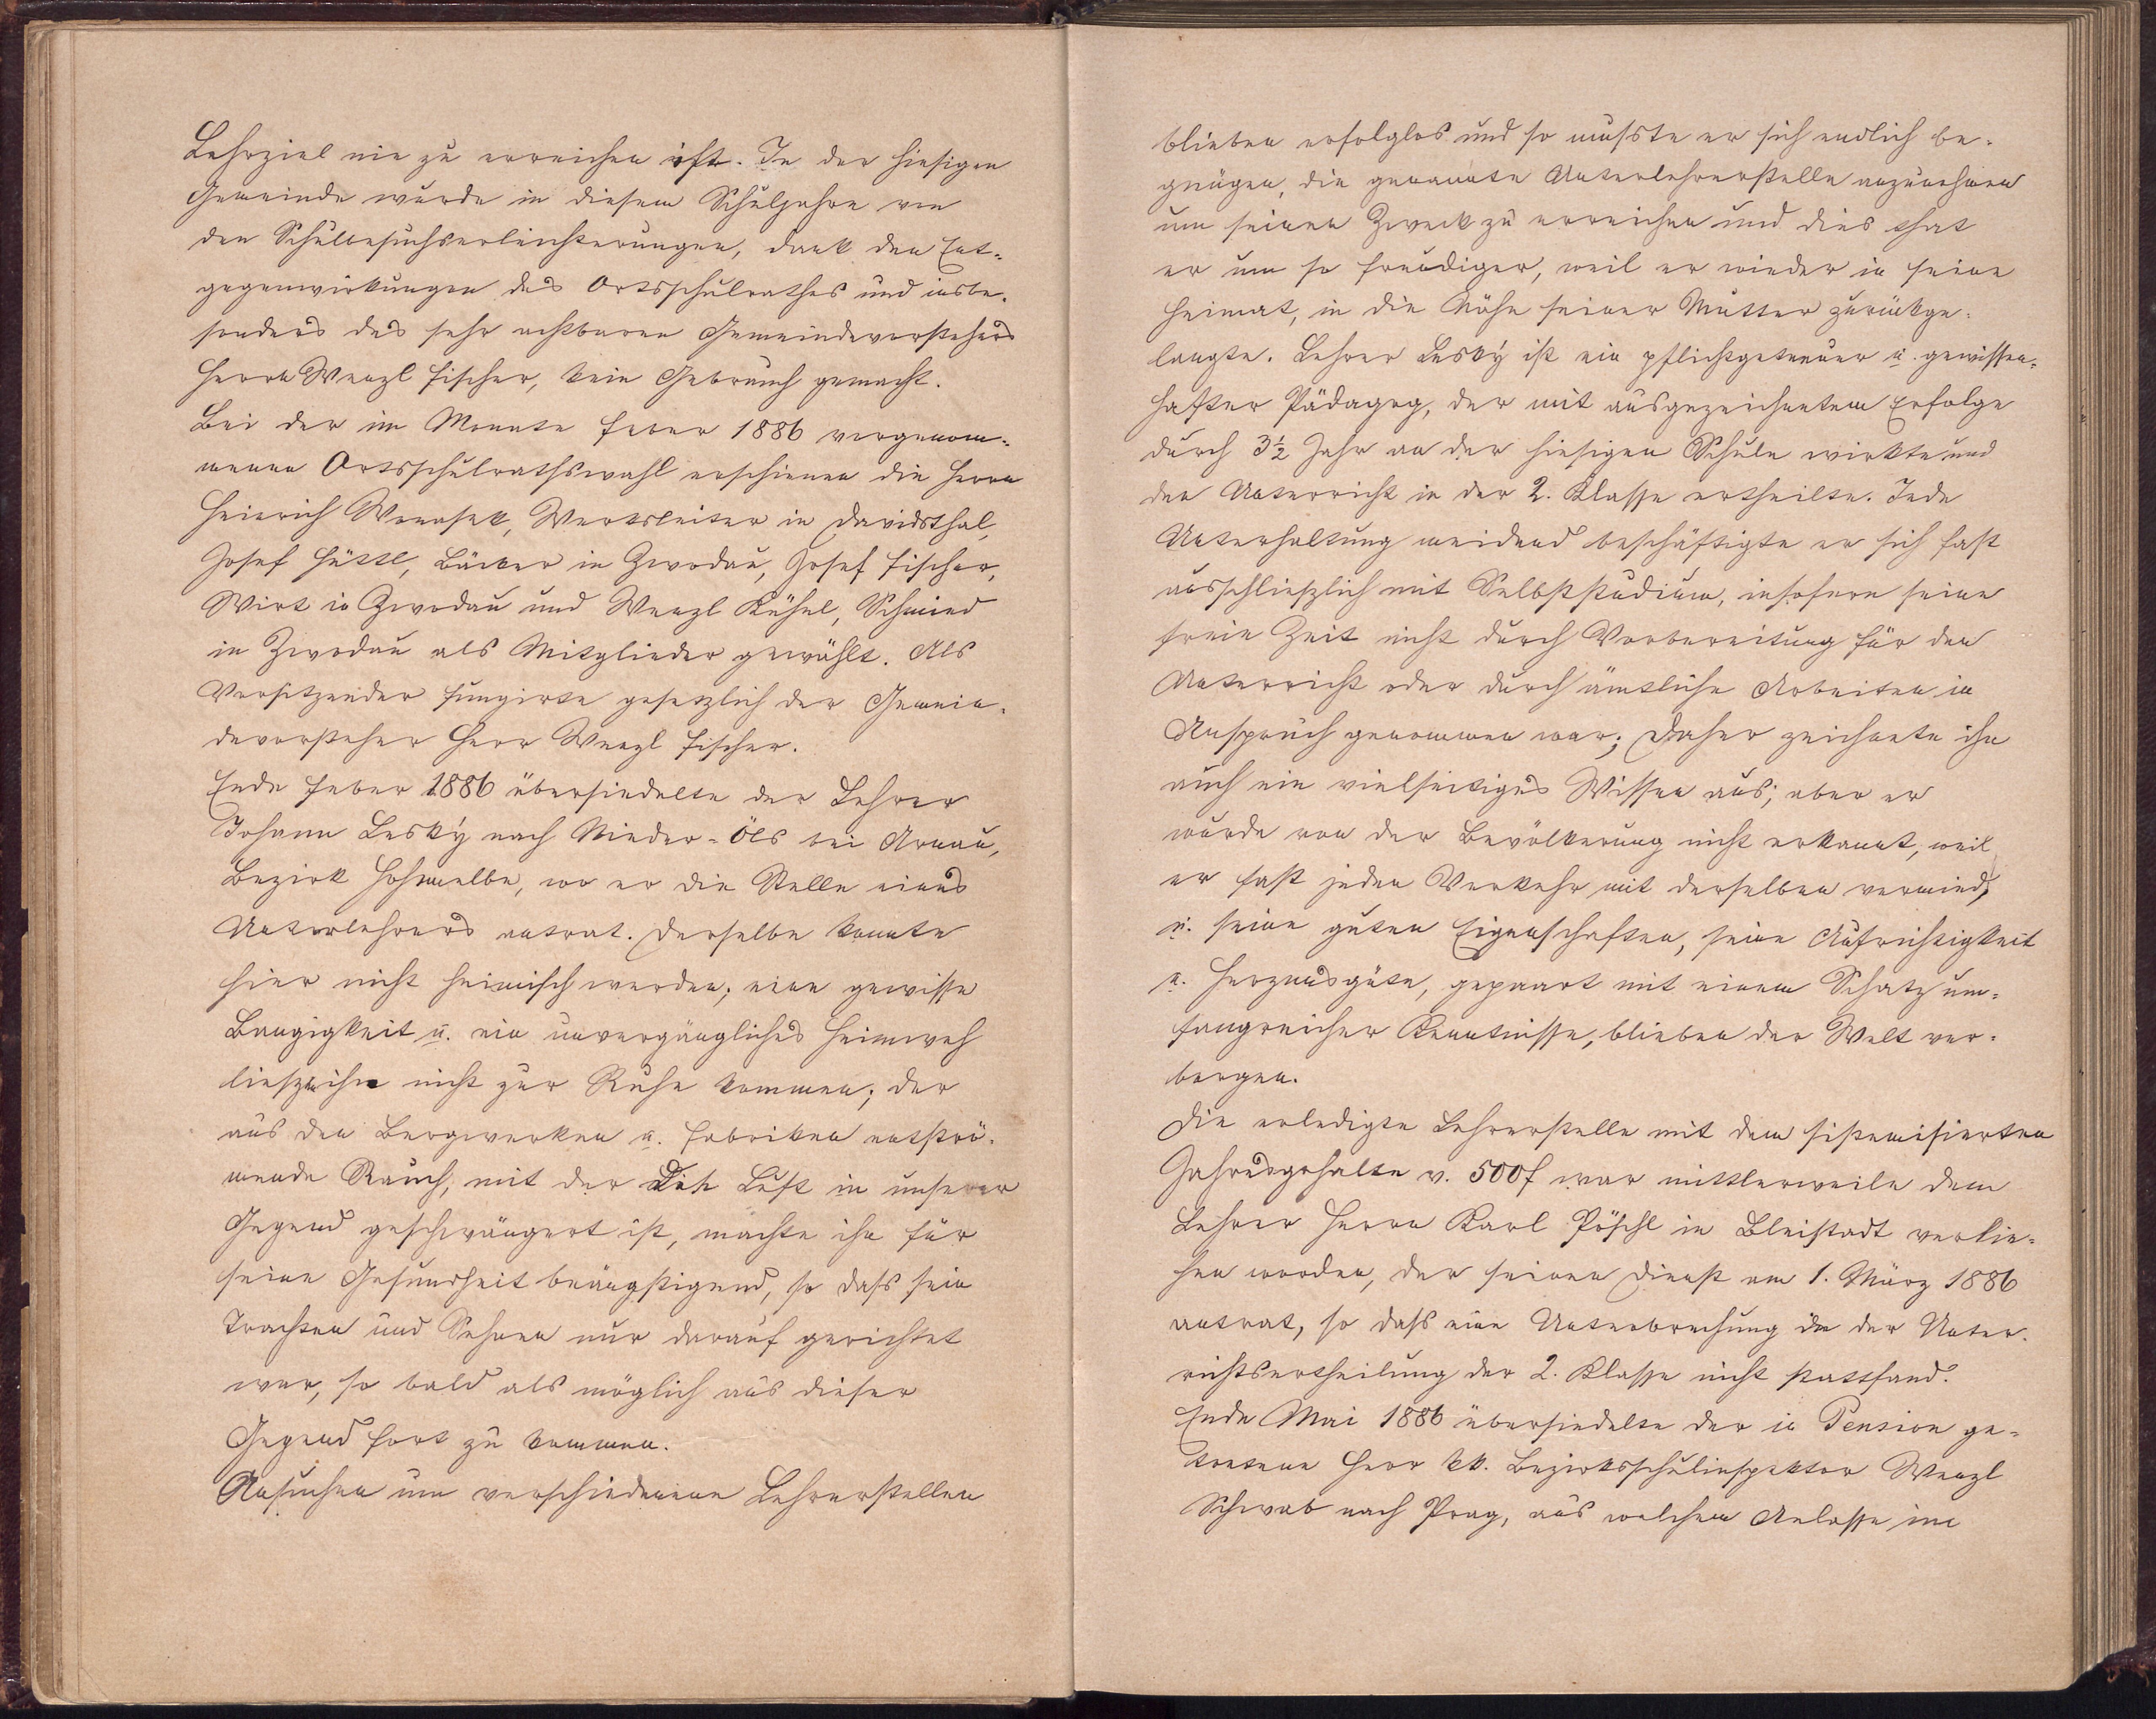 Lehrziel nie zu erreichen ist. In der hiesigen
Gemeinde wurde in diesem Schuljahre von
den Schulbesuchserleichterungen, dank den Ent-
gegenwirkungen des Ortsschulrathes und insbe-
sonders des sehr achtbaren Gemeindevorstehers
Herrn Wenzl Fischer, kein Gebrauch gemacht.
Bei der im Monate Feber 1886 vorgenom-
menen Ortsschulrathswahl erschienen die Herrn
Heinrich Werksleiter in Davidsthal,
Josef Hüttl, Bäcker in Zwodau, Josef Fischer,
Wirt in Zwodau und Wenzl Kühnl, Schmied
in Zwodau als Mitglieder gewählt. Als
Vorsitzender fungirte gesetzlich der Gemein-
devorsteher Herr Wenzl Fischer.
Ende Feber 1886 übersiedelte der Lehrer
Johann Lesky nach Nieder-Öls bei Arnau,
Bezirk Hohenelbe, wo er die Stelle eines
Unterlehrers antrat. Derselbe konnte
hier nicht heimisch werden; eine gewisse
Bangigkeit u. ein unvergängliches Heimweh
ließen ihn nicht zur Ruhe kommen; der
aus den Bergwerken u. Fabriken entströ-
mende Rauch, mit der Luft in unserer
Gegend geschwängert ist, machte ihn für
seine Gesundheit beängstigend, so dass sein
Trachten und Sehnen nur darauf gerichtet
war, so bald als möglich aus dieser
Gegend fort zu kommen.
Ansuchen um verschiedenene Lehrerstellen
blieben erfolglos und so musste er sich endlich be-
gnügen, die genannte Unterlehrerstelle anzunehmen
um seinen Zweck zu erreichen und dies that
er um so freudiger, weil er wieder in seine
Heimat, in die Nähe seiner Mutter zurückge-
langte. Lehrer Lesky ist ein pflichtgetreuer u. gewissen-
hafter Pädagog, der mit ausgezeichnetem Erfolge
durch 3½ Jahr an der hiesigen Schule wirkte und
den Unterricht in der 2. Klasse ertheilte. Jede
Unterhaltung meidend beschäftigte er sich fast
ausschließlich mit Selbststudium, insofern seine
freie Zeit nicht durch Vorbereitung für den
Unterricht oder durch ämtliche Arbeiten in
Anspruch genommen war; daher zeichnete ihn
auch ein vielseitiges Wissen aus; aber er
wurde von der Bevölkerung nicht erkannt, weil
er fast jeden Verkehr mit derselben vermied,
u. seine guten Eigenschaften, seine Aufrichtigkeit
u. Herzensgüte, gepaart mit einem Schatz um-
fangreicher Kenntnisse, blieben der Welt ver-
borgen.
Die erledigte Lehrerstelle mit dem sistemisierten
Jahresgehalte v. 500f war mittlerweile dem
Lehrer Herrn Karl Pöschl in Bleistadt verlie-
hen worden, der seinen Dienst am 1. März 1886
antrat, so dass eine Unterbrechung in der Unter-
richtsertheilung der 2. Klasse nicht stattfand.
Ende Mai 1886 übersiedelte der in Pension ge-
tretene Herr kk. Bezirksschulinspektor Wenzl
Schwab nach Prag, aus welchem Anlasse im